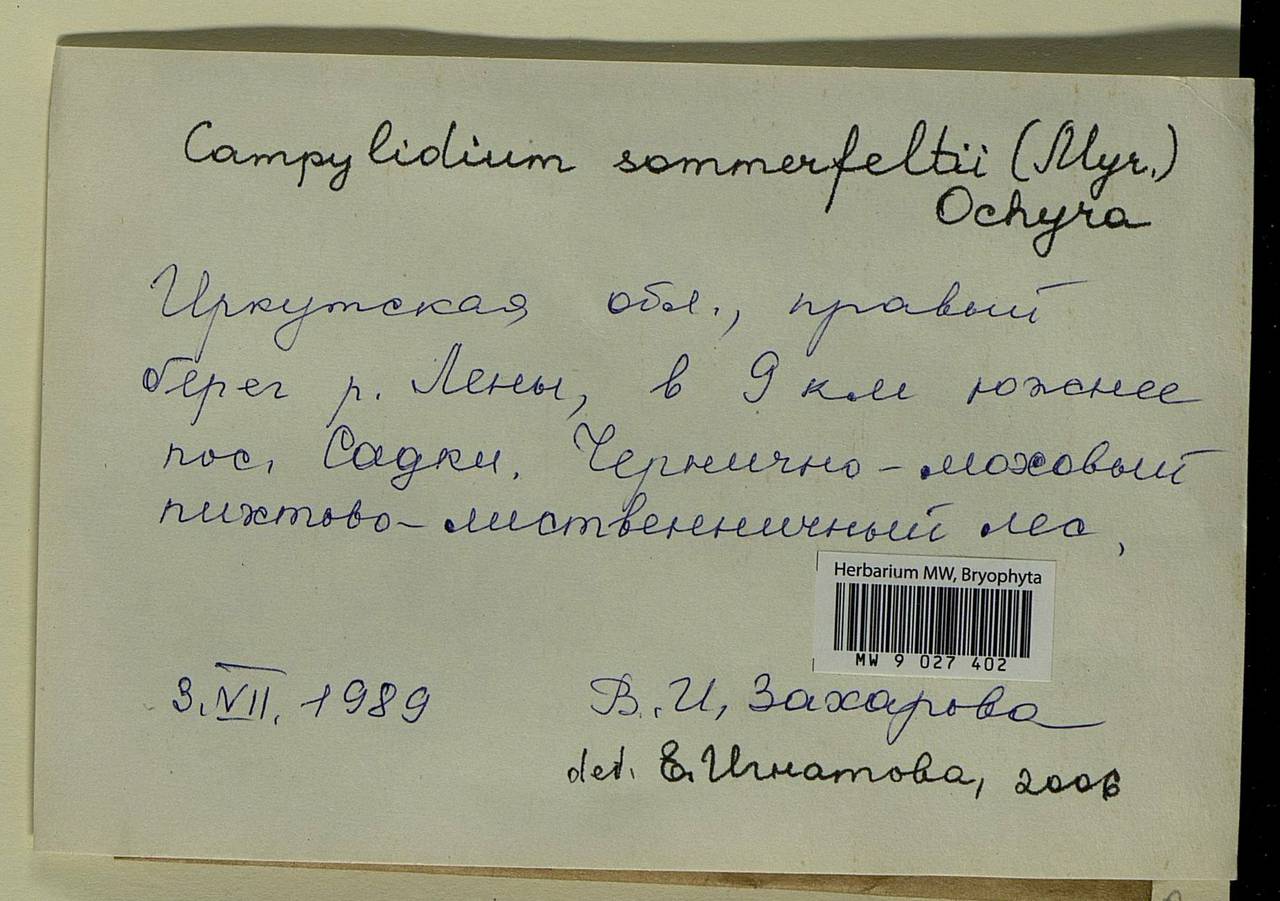 Campylidium sommerfeltii (Myr.)
Ochyra
Иркутская обл., правый
берег р. Лены, в 9 км южнее
пос. Садки. Чернично-моховый
пихтово-лиственничный лес,
Herbarium MW, Bryophyta
MW 9 027 402
3.VII.1989
В.И, Захарова
det. Е. Игнатова, 2006